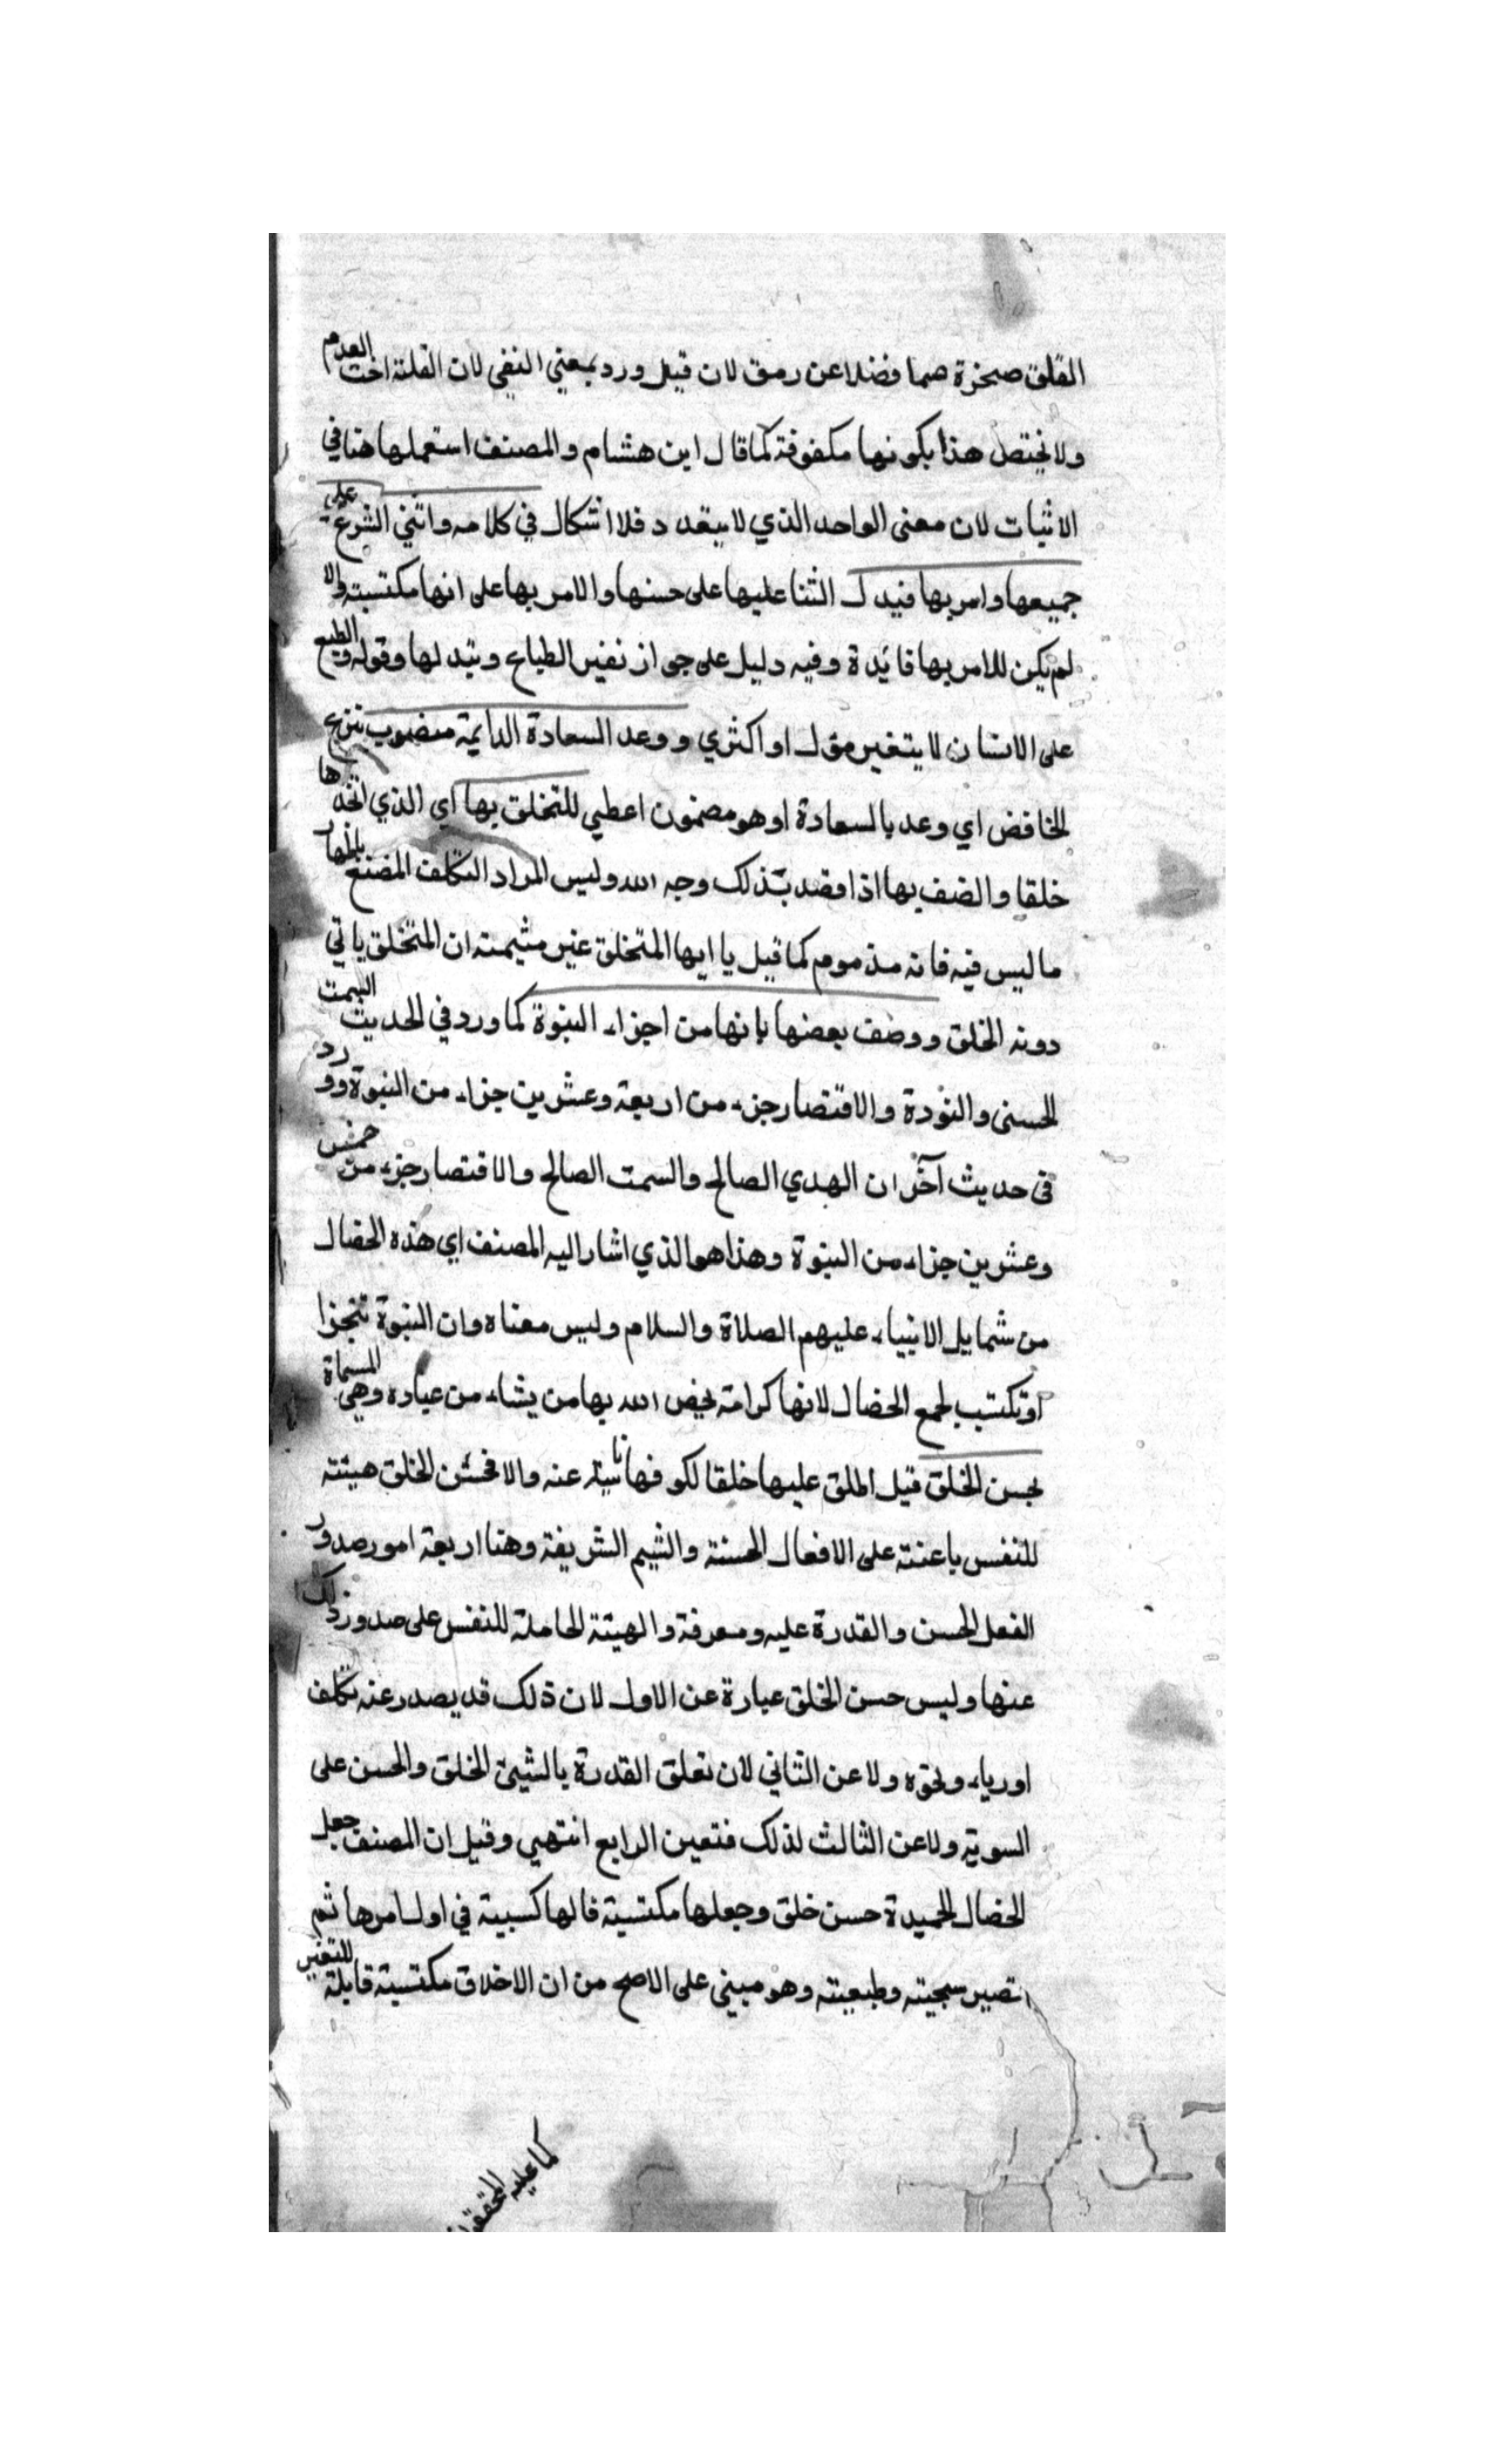 الفلق صخرة صما فضلا عن رمق لان قيل ورد بمعني النفي لان القلة اخت العدم
ولا يختص هذا بكونها مكفوفة كما قال ابن هشام والمصنف استعملها هنا في
الاثبات لان معنى الواحد الذي لا يتعدد فلا اشكال في كلامه واثني الشرع على
جميعها وامر بها فيدل الثنا عليها على حسنها والامر بها على انها مكتسبة والا
لم يكن للامر بها فايدة وفيه دليل على جواز تغير الطباع وتبدلها وقوله والطبع
على الانسان لا يتغير مؤل او اكثري ووعد السعادة الدايمة منصوب بنزع
الخافض اي وعد بالسعادة او هو مضمون اعطي للتخلق بها اي الذي اتخذها
خلقا والصف بها اذا قصد بذلك وجه الله وليس المراد التكلف المصنع باظهار
ما ليس فيه فانه مذموم كما قيل يا ايها المتخلق غير شيمته ان التخلق ياتي
دونه الخلق ووصف بعضها بانها من اجزاء النبوة كما ورد في الحديث السمت
الحسنى والتودة والاقتصار جزء من اربعة وعشرين جزاء من النبوة وورد
في حديث آخر ان الهدي الصالح والسمت الصالح والاقتصار جزء من خمس
وعشرين جزاء من النبوة وهذا هو الذي اشار اليه المصنف اي هذه الخصال
من شمايل الانبياء عليهم الصلاة والسلام وليس معناه وان النبوة تتجزا
او تكتسب لجمع الخصال لانها كرامة يخص الله بها من يشاء من عباده وهي المسماة
بحسن الخلق قيل اطلق عليها خلقا لكونها ناشية عنه والا فحسن الخلق هيئته
للنفس باعثة على الافعال الحسنة والشيم الشريفة وهنا اربعة امور صدور
الفعل الحسن والقدرة عليه ومعرفة والهيئة الحاملة للنفس على صدور ذلك
عنها وليس حسن الخلق عبارة عن الاول لان ذلك قد يصدر عنه تكلف
اورياء ونحوه ولا عن الثاني لان تعلق القدرة بالشيئ الخلق والحسن على
السوية ولا عن الثالث لذلك فتعين الرابع انتهي وقيل ان المصنف جعل
الخصال الحميدة حسن خلق وجعلها مكتسبة فالها كسبية في اول امرها ثم
تصير سجيته وطبيعته وهو مبني على الاصح من ان الاخلاق مكتسبة قابلة للتغير
كما عليه المحققون